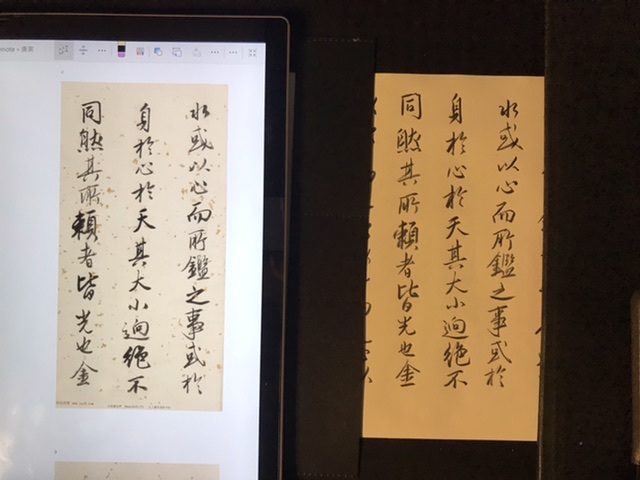 水或以心而所鑑之事或於
身於心於天其大小逈絶不
同然其所賴者皆光也金
水或以心而所鑑之事或於
身於心於天其大小逈絶不
同然其所賴者皆光也金